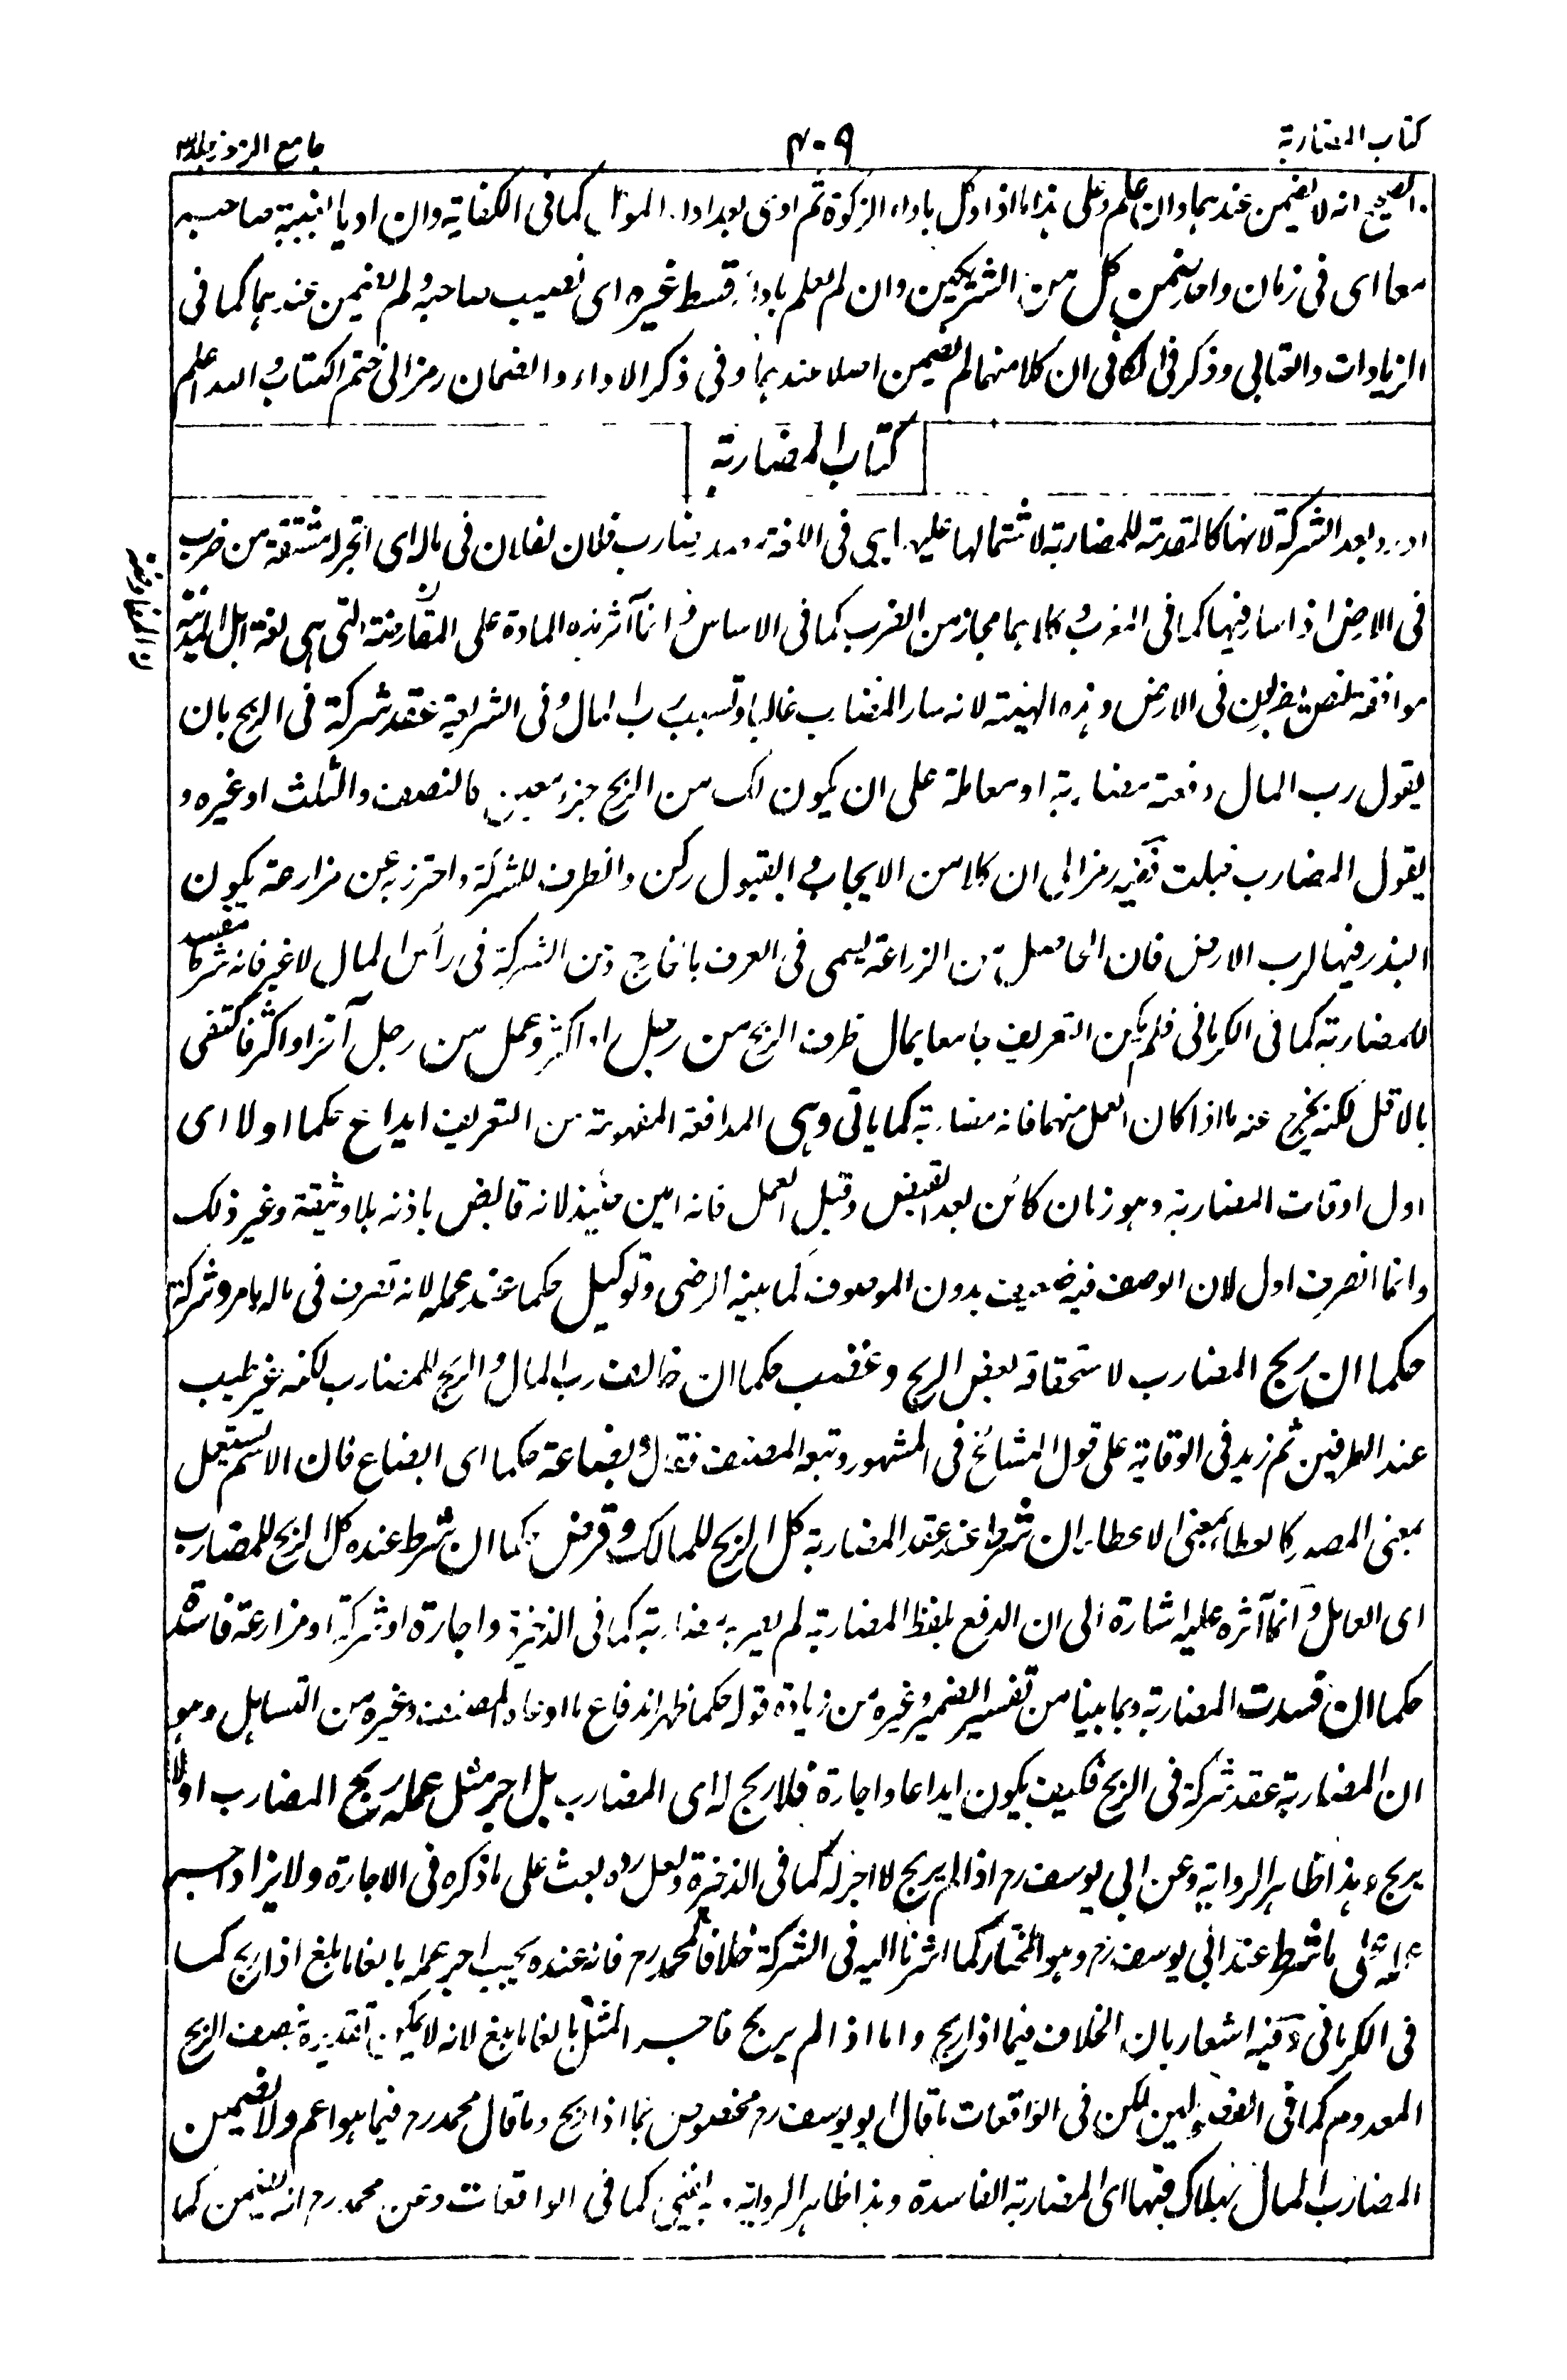 كتاب المضاربة
٤٠٩
جامع الرموز
الصحيح انه لا يضمن عندهما وان علم وعلى هذا ما اذا وكل باداء الزكوة ثم ادى بعد اداء الموكل كما فى الكفاية وان اديا بغيبة صاحبه
معا اى فى زمان واحد ضمن كل من الشريكين وان لم يعلم باداء قسط غيره اى نصيب صاحبه ولم يضمن عندهما كما فى
الزيادات والعتابى وذكر فى الكافى ان كلا منهما لم يضمن اصلا عندهما وفى ذكر الاداء والضمان رمز الى ختم الكتاب والله اعلم
كتاب المضاربة
اورد بعد الشركة لانها كالمقدمة للمضاربة لاشتمالها عليها هى فى اللغة مصدر ضارب فلان لفلان فى ماله اى اتجر له مشتقة من ضرب
فى الارض اذا سار فيها كما فى المغرب وكلاهما مجاز من الضرب كما فى الاساس وانما آثر هذه المادة على المقارضة التى هى لغة اهل المدينة
موافقة لنص يضربون فى الارض وهذه الهيئة لانه سار المضارب غالبا وتسبب رب المال وفى الشريعة عقد شركة فى الربح بان
يقول رب المال دفعته مضاربة او معاملة على ان يكون لك من الربح جزء معين كالنصف والثلث او غيره و
يقول المضارب قبلت ففيه رمز الى ان كلا من الايجاب والقبول ركن والظرف للشركة واحترز به عن مزارعة يكون
البذر فيها لرب الارض فان الحاصل من الزراعة يسمى فى العرف بالخارج وعن الشركة فى رأس المال لا غير فانه شرط مفسد
للمضاربة كما فى الكرمانى فلم يكن التعريف جامعا بمال ظرف الربح من رجل او اكثر وعمل من رجل آخر او اكثر فاكتفى
بالاقل لكنه يخرج عنه ما اذا كان العمل منهما فانه مضاربة كما ياتى وهى المدافعة المفهومة من التعريف ايداع حكما اولا اى
اول اوقات المضاربة وهو زمان كائن بعد القبض وقبل العمل فانه امين حينئذ لانه قابض باذنه بلا وثيقة وغير ذلك
وانما انصرف اول لان الوصف فيه ضعيف بدون الموصوف كما بينه الرضى وتوكيل حكما عند عمله لانه تصرف فى ماله بامره وشركة
حكما ان ربح المضارب لاستحقاقه بعض الربح وغصب حكما ان خالف رب المال والربح للمضارب لكنه غير طيب
عند الطرفين ثم زيد فى الوقاية على قول المشائخ فى المشهور وتبعه المصنف فقال وبضاعة حكما اى ابضاع فان الاسم يستعمل
بمعنى المصدر كالعطاء بمعنى الاعطاء ان شرط عند عقد المضاربة كل الربح للمالك وقرض حكما ان شرط عنده كل الربح للمضارب
اى العامل وانما آثره عليه اشارة الى ان الدفع بلفظ المضاربة لم يصر به مضاربة كما فى الذخيرة واجارة او شركة او مزارعة فاسدة
حكما ان فسدت المضاربة وبما بينا من تفسير الضمير وغيره من زيادة قوله حكما ظهر اندفاع ما ادعاه المصنف وغيره من التساهل وهو
ان المضاربة عقد شركة فى الربح فكيف يكون ايداعا واجارة فلا ربح له اى المضارب بل اجر مثل عمله ربح المضارب اولا
يربح وهذا ظاهر الرواية وعن ابى يوسف رح اذا لم يربح لا اجر له كما فى الذخيرة ولعل رده بعث على ما ذكره فى الاجارة ولا يزاد اجر
مثله على ما شرط عند ابى يوسف رح وهو المختار كما اشرنا اليه فى الشركة خلافا لمحمد رح فانه عنده يجب اجر عمله بالغا ما بلغ اذا ربح كما
فى الكرمانى وفيه اشعار بان الخلاف فيما اذا ربح واما اذا لم يربح فاجر المثل بالغا ما بلغ لانه لا يمكن تقديره بنصف الربح
المعدوم كما فى الفصولين لكن فى الواقعات ما قال ابو يوسف رح مخصوص بما اذا ربح وما قال محمد رح فيما هو اعم ولا يضمن
المضارب المال بهلاك فيها اى المضاربة الفاسدة وهذا ظاهر الرواية وبه يفتى كما فى الواقعات وعن محمد رح انه يضمن كما